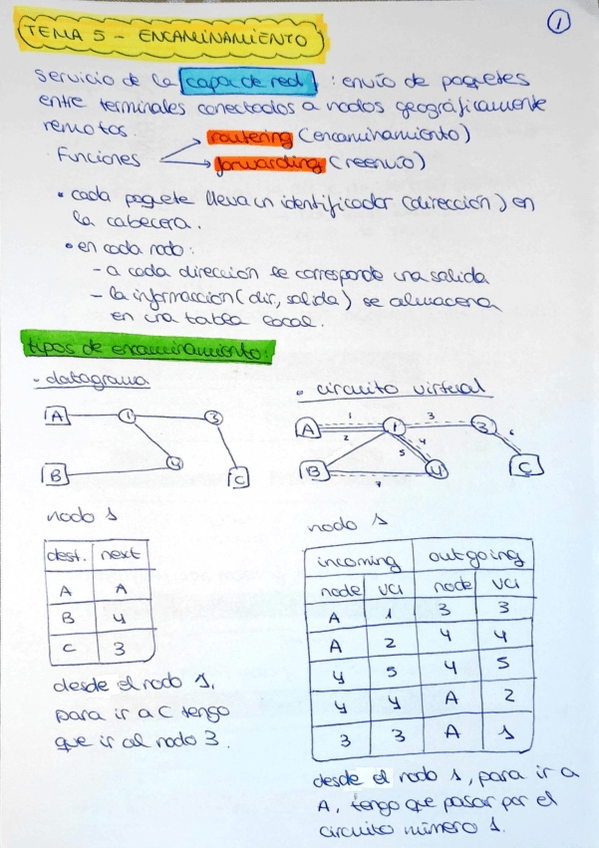 1
TEMA 5 - ENCAMINAMIENTO
servicio de la capa de red : envío de paquetes
entre terminales conectados a nodos geográficamente
remotos.
Funciones
routering (encaminamiento)
forwarding (reenvío)
• cada paquete lleva un identificador (dirección) en
la cabecera.
• en cada nodo:
- a cada dirección le corresponde una salida
- la información (dir, salida) se almacena
en una tabla local.
tipos de encaminamiento:
- datagrama
A 1 3
B 4 C
nodo 1
dest. next
A A
B 4
C 3
desde el nodo 1,
para ir a C tengo
que ir al nodo 3.
• circuito virtual
A 1 2 1 3 3 6
B 5 4 4 C
nodo 1
incoming outgoing
node VCI node VCI
A 1 3 3
A 2 4 4
4 5 4 5
4 4 A 2
3 3 A 1
desde el nodo 1, para ir a
A, tengo que pasar por el
circuito número 1.